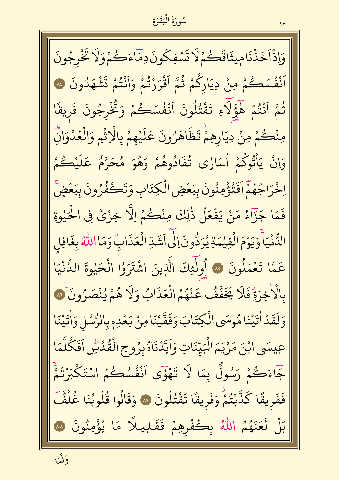 سُورَةُ الْبَقَرَةِ
وَاِذْ اَخَذْنَا م۪يثَاقَكُمْ لَا تَسْفِكُونَ دِمَٓاءَكُمْ وَلَا تُخْرِجُونَ
اَنْفُسَكُمْ مِنْ دِيَارِكُمْ ثُمَّ اَقْرَرْتُمْ وَاَنْتُمْ تَشْهَدُونَ ﴿٨٤﴾
ثُمَّ اَنْتُمْ هٰٓؤُ۬لَٓاءِ تَقْتُلُونَ اَنْفُسَكُمْ وَتُخْرِجُونَ فَر۪يقًا
مِنْكُمْ مِنْ دِيَارِهِمْۘ تَظَاهَرُونَ عَلَيْهِمْ بِالْاِثْمِ وَالْعُدْوَانِۜ
وَاِنْ يَأْتُوكُمْ اُسَارٰى تُفَادُوهُمْ وَهُوَ مُحَرَّمٌ عَلَيْكُمْ
اِخْرَاجُهُمْۜ اَفَتُؤْمِنُونَ بِبَعْضِ الْكِتَابِ وَتَكْفُرُونَ بِبَعْضٍۚ
فَمَا جَزَٓاءُ مَنْ يَفْعَلُ ذٰلِكَ مِنْكُمْ اِلَّا خِزْيٌ فِي الْحَيٰوةِ
الدُّنْيَاۚ وَيَوْمَ الْقِيٰمَةِ يُرَدُّونَ اِلٰٓى اَشَدِّ الْعَذَابِۜ وَمَا اللّٰهُ بِغَافِلٍ
عَمَّا تَعْمَلُونَ ﴿٨٥﴾ اُو۬لٰٓئِكَ الَّذ۪ينَ اشْتَرَوُا الْحَيٰوةَ الدُّنْيَا
بِالْاٰخِرَةِۘ فَلَا يُخَفَّفُ عَنْهُمُ الْعَذَابُ وَلَا هُمْ يُنْصَرُونَ۟ ﴿٨٦﴾
وَلَقَدْ اٰتَيْنَا مُوسَى الْكِتَابَ وَقَفَّيْنَا مِنْ بَعْدِه۪ بِالرُّسُلِ وَاٰتَيْنَا
ع۪يسَى ابْنَ مَرْيَمَ الْبَيِّنَاتِ وَاَيَّدْنَاهُ بِرُوحِ الْقُدُسِۜ اَفَكُلَّمَا
جَٓاءَكُمْ رَسُولٌ بِمَا لَا تَهْوٰٓى اَنْفُسُكُمُ اسْتَكْبَرْتُمْۚ
فَفَر۪يقًا كَذَّبْتُمْۘ وَفَر۪يقًا تَقْتُلُونَ ﴿٨٧﴾ وَقَالُوا قُلُوبُنَا غُلْفٌۜ
بَلْ لَعَنَهُمُ اللّٰهُ بِكُفْرِهِمْ فَقَل۪يلًا مَا يُؤْمِنُونَ ﴿٨٨﴾
وَلَمَّا